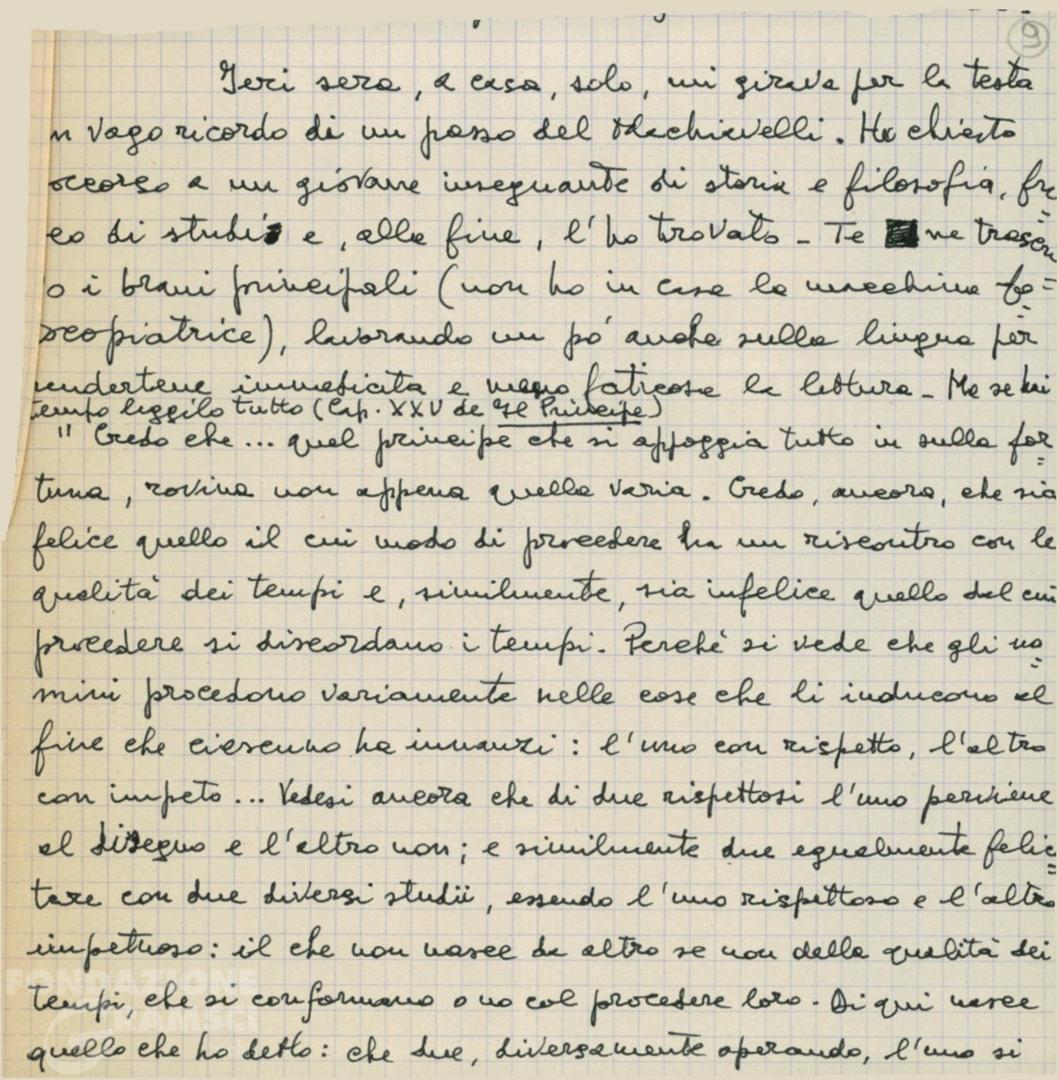 9
Ieri sera, a casa, solo, mi girava per la testa
n vago ricordo di un passo del Machiavelli. Ho chiesto
occorso a un giovane insegnante di storia e filosofia, fre=
co di studi e, alla fine, l'ho trovato - Te ne trascri
o i brani principali (non ho in casa la macchina fo=
ocopiatrice), lavorando un po' anche sulla lingua per
rendertene immediata e meno faticosa la lettura - Ma se hai
tempo leggilo tutto (Cap. XXV de Il Principe)
" Credo che ... quel principe che si appoggia tutto in sulla for=
tuna, rovina non appena quella varia. Credo, ancora, che sia
felice quello il cui modo di procedere ha un riscontro con le
qualità dei tempi e, similmente, sia infelice quello dal cui
procedere si discordano i tempi. Perchè si vede che gli uo=
mini procedono variamente nelle cose che li inducono al
fine che ciascuno ha innanzi: l'uno con rispetto, l'altro
con impeto ... Vedesi ancora che di due rispettosi l'uno perviene
al disegno e l'altro non; e similmente due egualmente felici=
tare con due diversi studii, essendo l'uno rispettoso e l'altro
impetuoso: il che non nasce da altro se non dalla qualità dei
tempi, che si conformano o no col procedere loro. Di qui nasce
quello che ho detto: che due, diversamente operando, l'uno si
FONDAZIONE